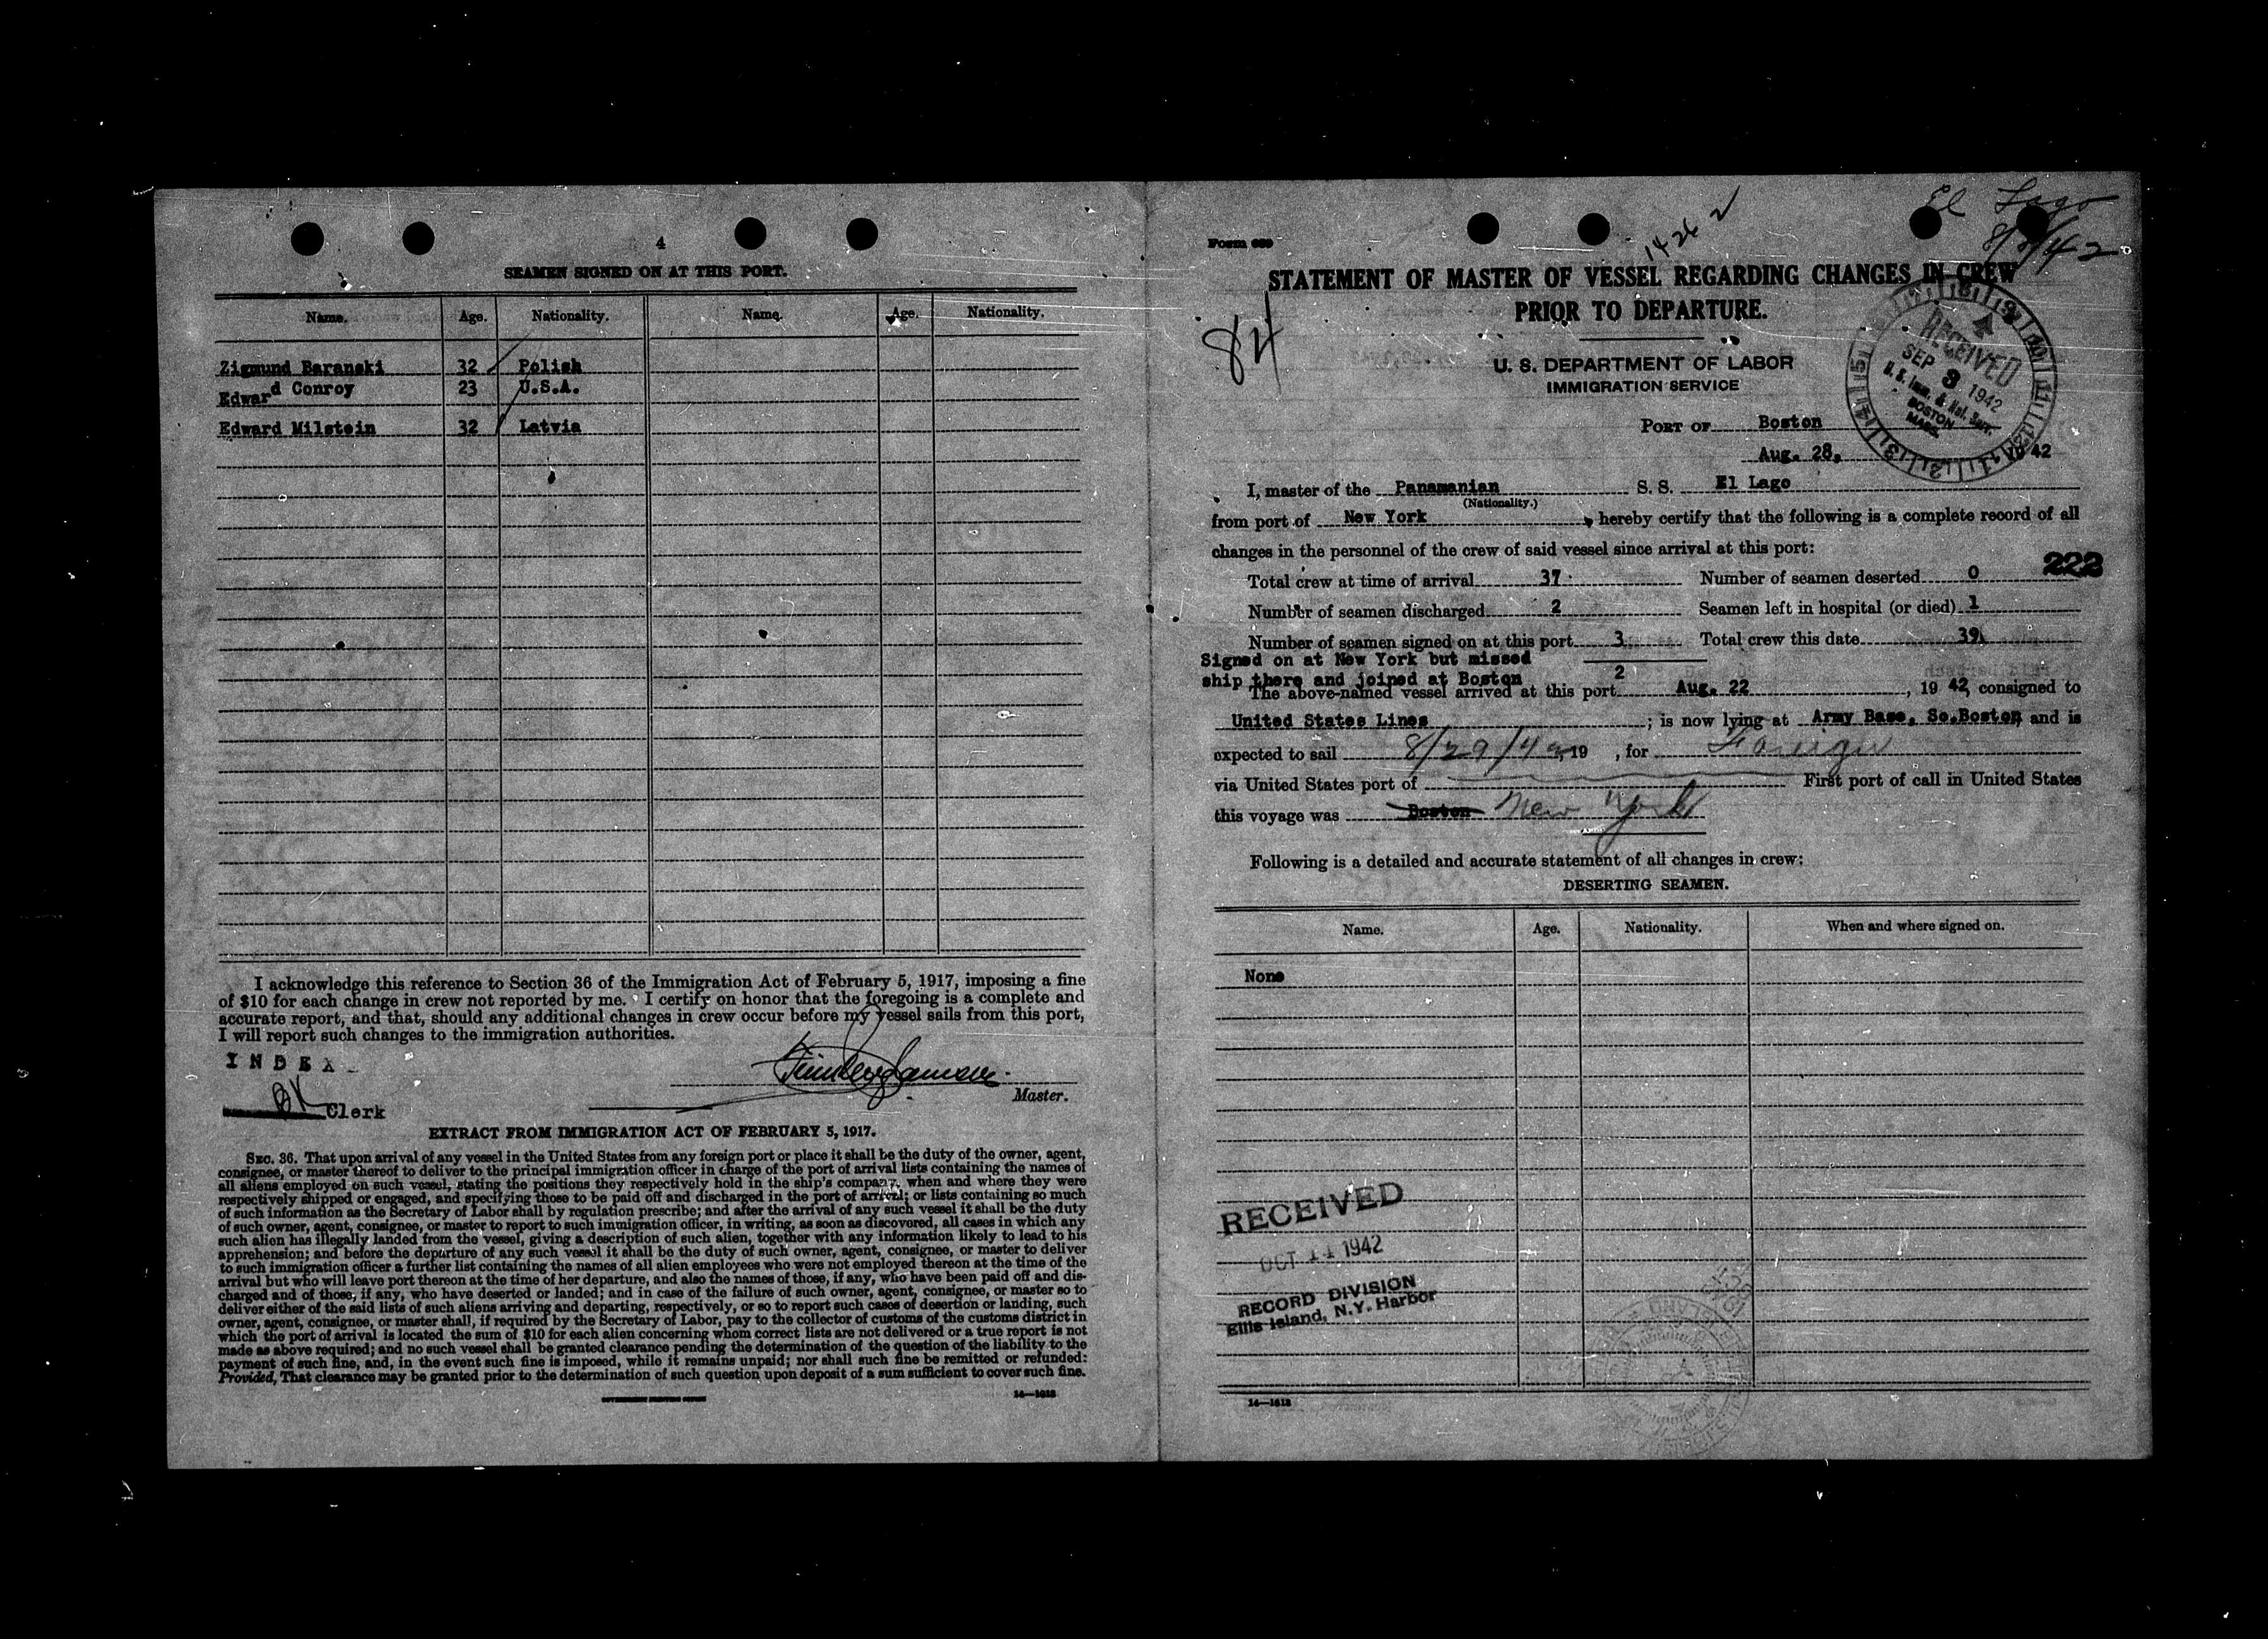 4
SEAMEN SIGNED ON AT THIS PORT.
Name. Age. Nationality. Name. Age. Nationality.
Zigmund Baranski 32 Polish
Edward Conroy 23 U.S.A.
Edward Milstein 32 Latvia
I acknowledge this reference to Section 36 of the Immigration Act of February 5, 1917, imposing a fine
of $10 for each change in crew not reported by me. I certify on honor that the foregoing is a complete and
accurate report, and that, should any additional changes in crew occur before my vessel sails from this port,
I will report such changes to the immigration authorities.
INDEX
BK Clerk
Master.
EXTRACT FROM IMMIGRATION ACT OF FEBRUARY 5, 1917.
SEC. 36. That upon arrival of any vessel in the United States from any foreign port or place it shall be the duty of the owner, agent,
consignee, or master thereof to deliver to the principal immigration officer in charge of the port of arrival lists containing the names of
all aliens employed on such vessel, stating the positions they respectively hold in the ship's company, when and where they were
respectively shipped or engaged, and specifying those to be paid off and discharged in the port of arrival; or lists containing so much
of such information as the Secretary of Labor shall by regulation prescribe; and after the arrival of any such vessel it shall be the duty
of such owner, agent, consignee, or master to report to such immigration officer, in writing, as soon as discovered, all cases in which any
such alien has illegally landed from the vessel, giving a description of such alien, together with any information likely to lead to his
apprehension; and before the departure of any such vessel it shall be the duty of such owner, agent, consignee, or master to deliver
to such immigration officer a further list containing the names of all alien employees who were not employed thereon at the time of the
arrival but who will leave port thereon at the time of her departure, and also the names of those, if any, who have been paid off and dis-
charged and of those, if any, who have deserted or landed; and in case of the failure of such owner, agent, consignee, or master so to
deliver either of the said lists of such aliens arriving and departing, respectively, or so to report such cases of desertion or landing, such
owner, agent, consignee, or master shall, if required by the Secretary of Labor, pay to the collector of customs of the customs district in
which the port of arrival is located the sum of $10 for each alien concerning whom correct lists are not delivered or a true report is not
made as above required; and no such vessel shall be granted clearance pending the determination of the question of the liability to the
payment of such fine, and, in the event such fine is imposed, while it remains unpaid; nor shall such fine be remitted or refunded:
Provided, That clearance may be granted prior to the determination of such question upon deposit of a sum sufficient to cover such fine.
GOVERNMENT PRINTING OFFICE 14—1613
El Lago
1426 2
Form 689
STATEMENT OF MASTER OF VESSEL REGARDING CHANGES IN CREW
PRIOR TO DEPARTURE.
84
U. S. DEPARTMENT OF LABOR
IMMIGRATION SERVICE
RECEIVED
SEP 3 1942
U. S. Imm. & Nat. Serv.
BOSTON
MASS.
PORT OF Boston
Aug. 28, 1942
I, master of the Panamanian S. S. El Lago
(Nationality.)
from port of New York, hereby certify that the following is a complete record of all
changes in the personnel of the crew of said vessel since arrival at this port:
222
Total crew at time of arrival 37 Number of seamen deserted 0
Number of seamen discharged 2 Seamen left in hospital (or died) 1
Number of seamen signed on at this port 3 Total crew this date 39
Signed on at New York but missed
ship there and joined at Boston 2
The above-named vessel arrived at this port Aug. 22, 1942, consigned to
United States Lines; is now lying at Army Base, So.Boston and is
expected to sail 8/29/42, 19 , for Foreign
via United States port of First port of call in United States
this voyage was Boston New York
Following is a detailed and accurate statement of all changes in crew:
DESERTING SEAMEN.
Name. Age. Nationality. When and where signed on.
None
RECEIVED
OCT 14 1942
RECORD DIVISION
Ellis Island, N.Y. Harbor
14—1613